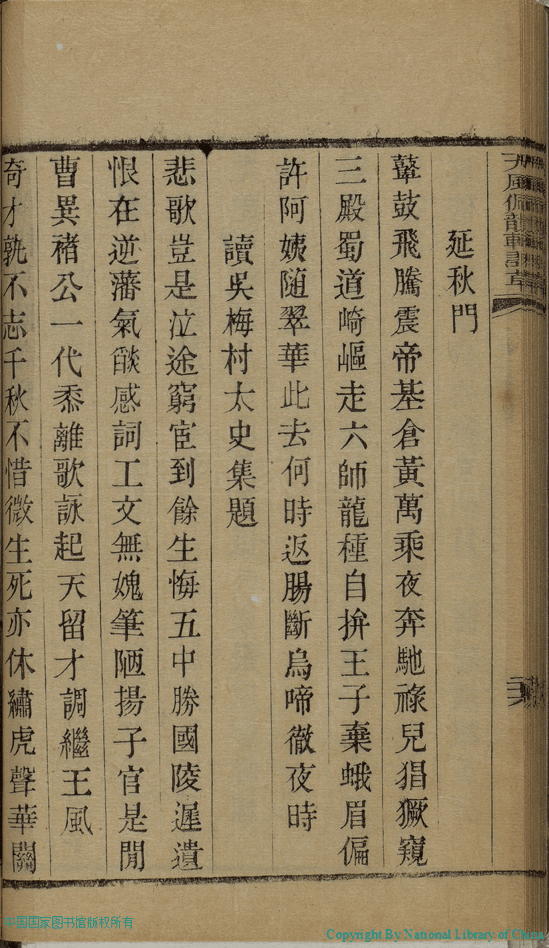 延秋門
鼙鼓飛騰震帝基倉黃萬乘夜奔馳祿兒猖獗窺
三殿蜀道崎嶇走六師龍種自拚王子棄蛾眉偏
許阿姨随翠華此去何時返腸斷烏啼徹夜時
讀吳梅村太史集題
悲歌豈是泣途窮宦到餘生悔五中勝國陵遲遺
恨在逆藩氣燄感詞工文無媿筆陋揚子官是閒
曹異褚公一代黍離歌詠起天留才調繼王風
奇才孰不志千秋不惜微生死亦休繡虎聲華關
中国国家图书馆版权所有
Copyright By National Library of China